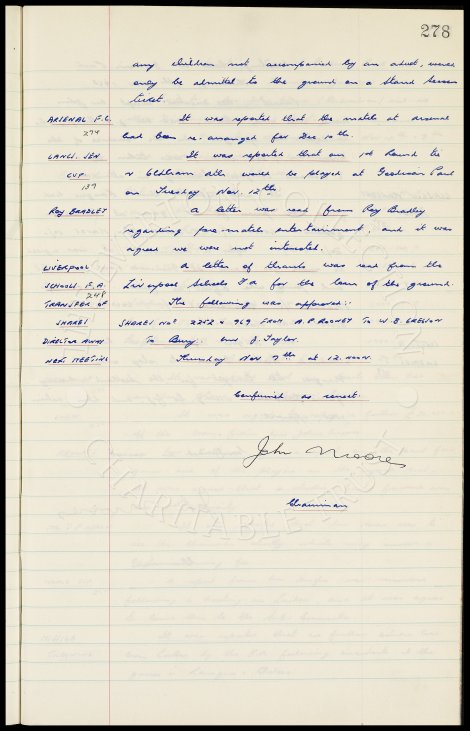 278
any children not accompanied by an adult, would
only be admitted to the ground on a Stand Season
ticket.
ARSENAL F.C. It was reported that the match at Arsenal
274 had been re-arranged for Dec. 10th.
LANCS. SEN It was reported that our 1st Round tie
CUP v Oldham Ath. would be played at Goodison Park
137 on Tuesday Nov. 12th.
ROY BRADLEY A letter was read from Roy Bradley
regarding pre-match entertainment, and it was
agreed we were not interested.
LIVERPOOL A letter of thanks was read from the
SCHOOLS F.A. Liverpool Schools F.A. for the loan of the ground.
248
TRANSFER OF The following was approved:-
SHARES SHARES Nos 2252 & 969 FROM A.P. ROONEY TO W.B.
DIRECTOR AWAY To Bury. Mr J. Taylor.
NEXT MEETING Thursday Nov 7th at 12 noon.
Confirmed as correct.
John Moores
Chairman
CHARITABLE TRUST